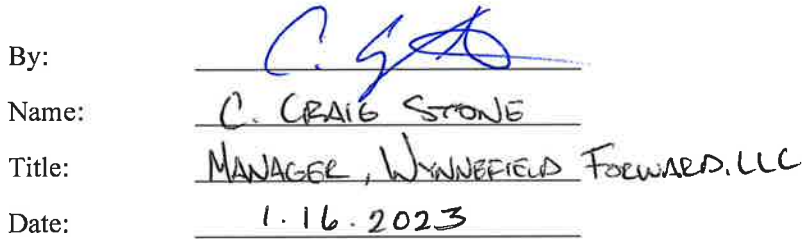 By:
Name: C. CRAIG STONE
Title: MANAGER, WYNNEFIELD FORWARD, LLC
Date: 1.16.2023